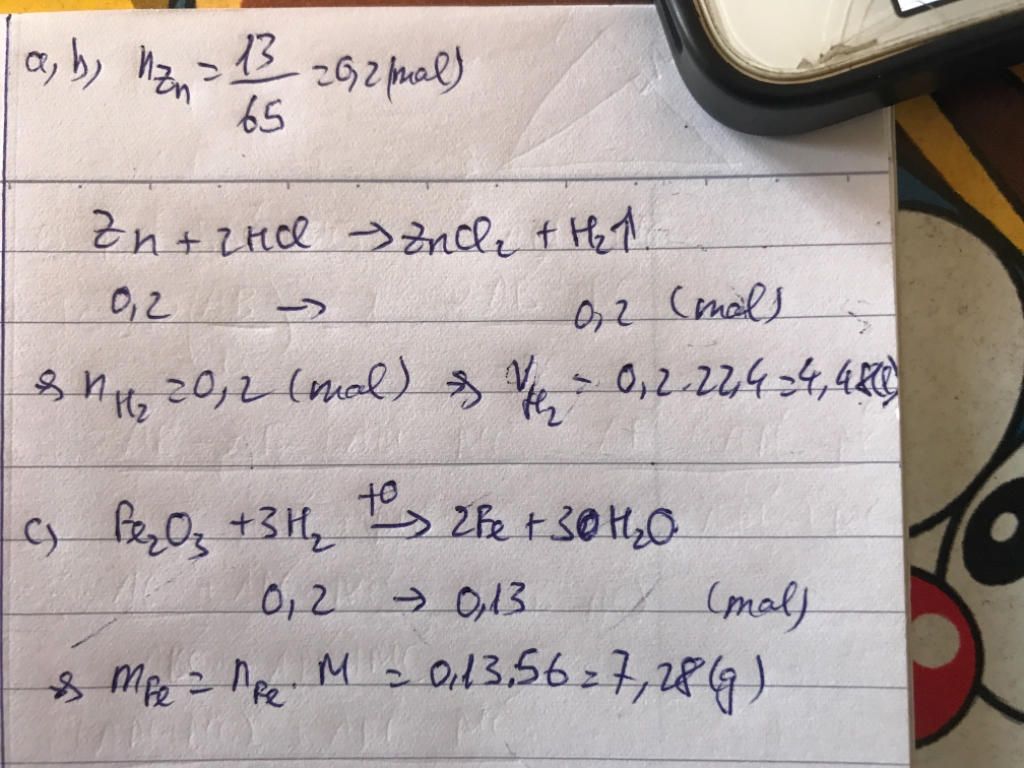 a, b, n_Zn = 13/65 = 0,2 (mol)
Zn + 2HCl → ZnCl₂ + H₂↑
0,2 → 0,2 (mol)
⇒ n_H₂ = 0,2 (mol) ⇒ V_H₂ = 0,2.22,4 = 4,48(l)
c, Fe₂O₃ + 3H₂ —t°→ 2Fe + 3H₂O
0,2 → 0,13 (mol)
⇒ m_Fe = n_Fe . M = 0,13.56 = 7,28 (g)